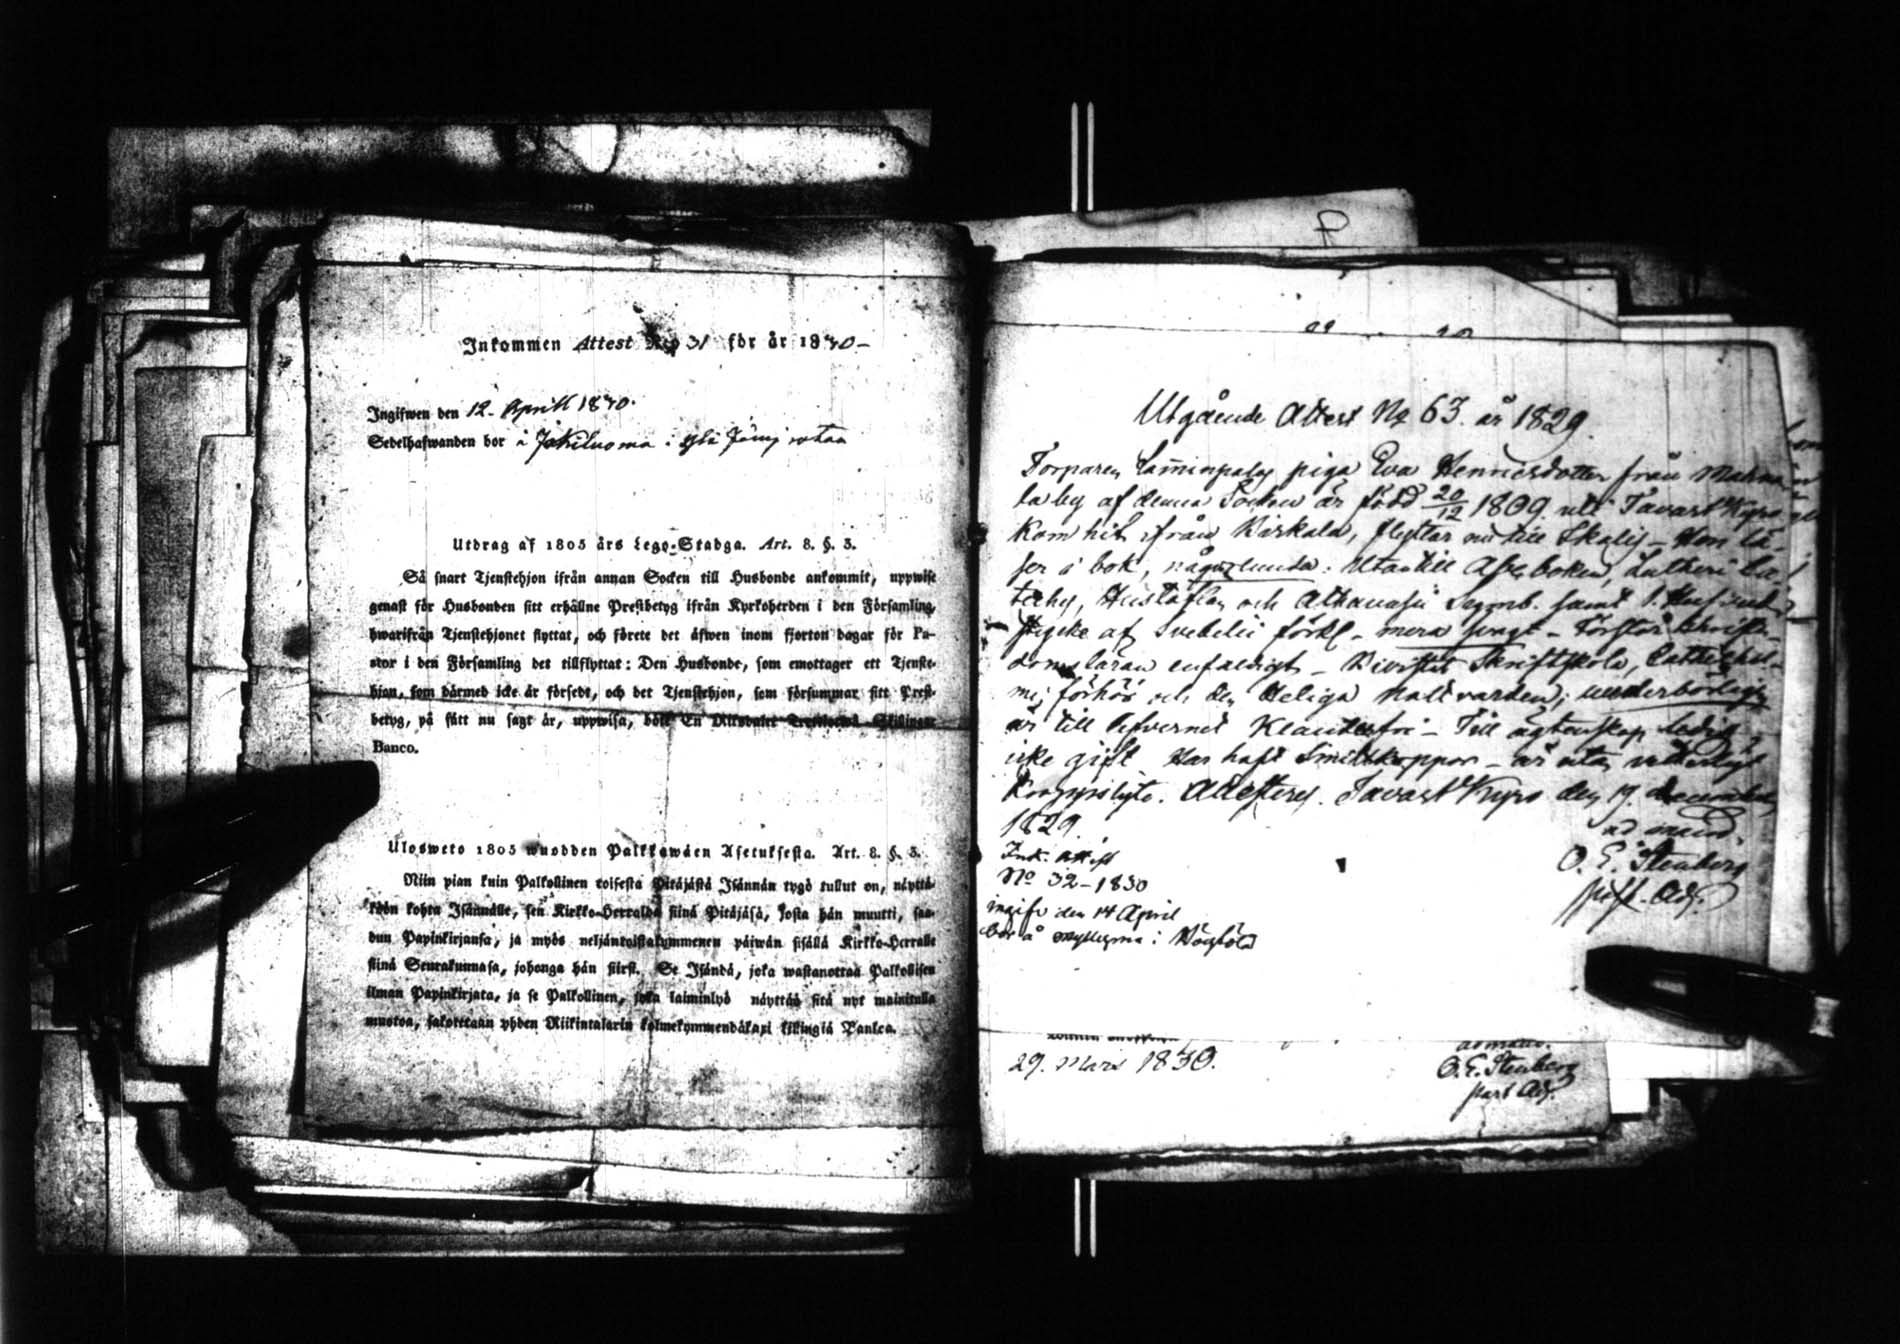 Inkommen Attest N:o 31 för år 1830-
Ingifwen den 12. April 1830.
Sedelhafwanden bor å Jokiluoma i Yli Jämj rotan
Utdrag af 1805 års Lego-Stadga. Art. 8. §. 3.
Så snart Tjenstehjon ifrån annan Socken till Husbonde ankommit, uppwise
genast för Husbonden sitt erhållne Prestbetyg ifrån Kyrkoherden i den Församling,
hwarifrån Tjenstehjonet flyttat, och förete det äfwen inom fjorton dagar för Pa-
stor i den Församling det tillflyttat: Den Husbonde, som emottager ett Tjenste-
hjon, som därmed icke är försedt, och det Tjenstehjon, som försummar sitt Prest-
betyg, på sätt nu sagt är, uppwisa, böte En Riksdaler Trettiotwå Skillingar
Banco.
Ulosweto 1805 wuodden Palkkawäen Asetuksesta. Art. 8. §. 3.
Niin pian kuin Palkollinen toisesta Pitäjästä Isännän tygö tullut on, näyttä-
köön kohta Isännälle, sen Kirkko-Herralda siinä Pitäjäsä, josta hän muutti, saa-
dun Papinkirjansa, ja myös neljäntoistakymmenen päiwän sisällä Kirkko-Herralle
siinä Seurakunnasa, johonga hän siirsi. Se Isändä, joka wastanottaa Palkollisen
ilman Papinkirjata, ja se Palkollinen, joka laiminlyö näyttää sitä nyt mainitulla
muotoa, sakotetaan yhden Riikintalarin kolmekymmendäkaxi killingiä Pankca.
Utgående Attest No 63. år 1829.
Torparen piga Eva Henricsdotter från
la by af denna Socken är född 20/12 1809. uti Tavast Kyro
Kom hit ifrån Birkala, flyttar nu till Ikalis - Hon lä-
ser i bok, någorlunda: Utantill Abc boken, Lutheri Ca-
teches, Hustaflan och Athanasii Symb. samt
stycke af Svebelii förkl. - mera svagt - Förstår Christen-
doms läran enfaldigt - Bivistat Skriftskola, Catechis-
mi förhör och den Heliga Nattvarden,
är till lefvernet Klanderfri - Till ägtenskap ledig,
icke gift Har haft Smittkoppor - är utan
kroppslyte. Attesteres. Tavast Kyro den 19. December
1829.
ad mand.
O. E. Stenberg
Ink. attest
No 32-1830
ingifv. den 14 April
bor å i
29. Mars 1830.
ad mand.
O. E. Stenberg
past. Adj.